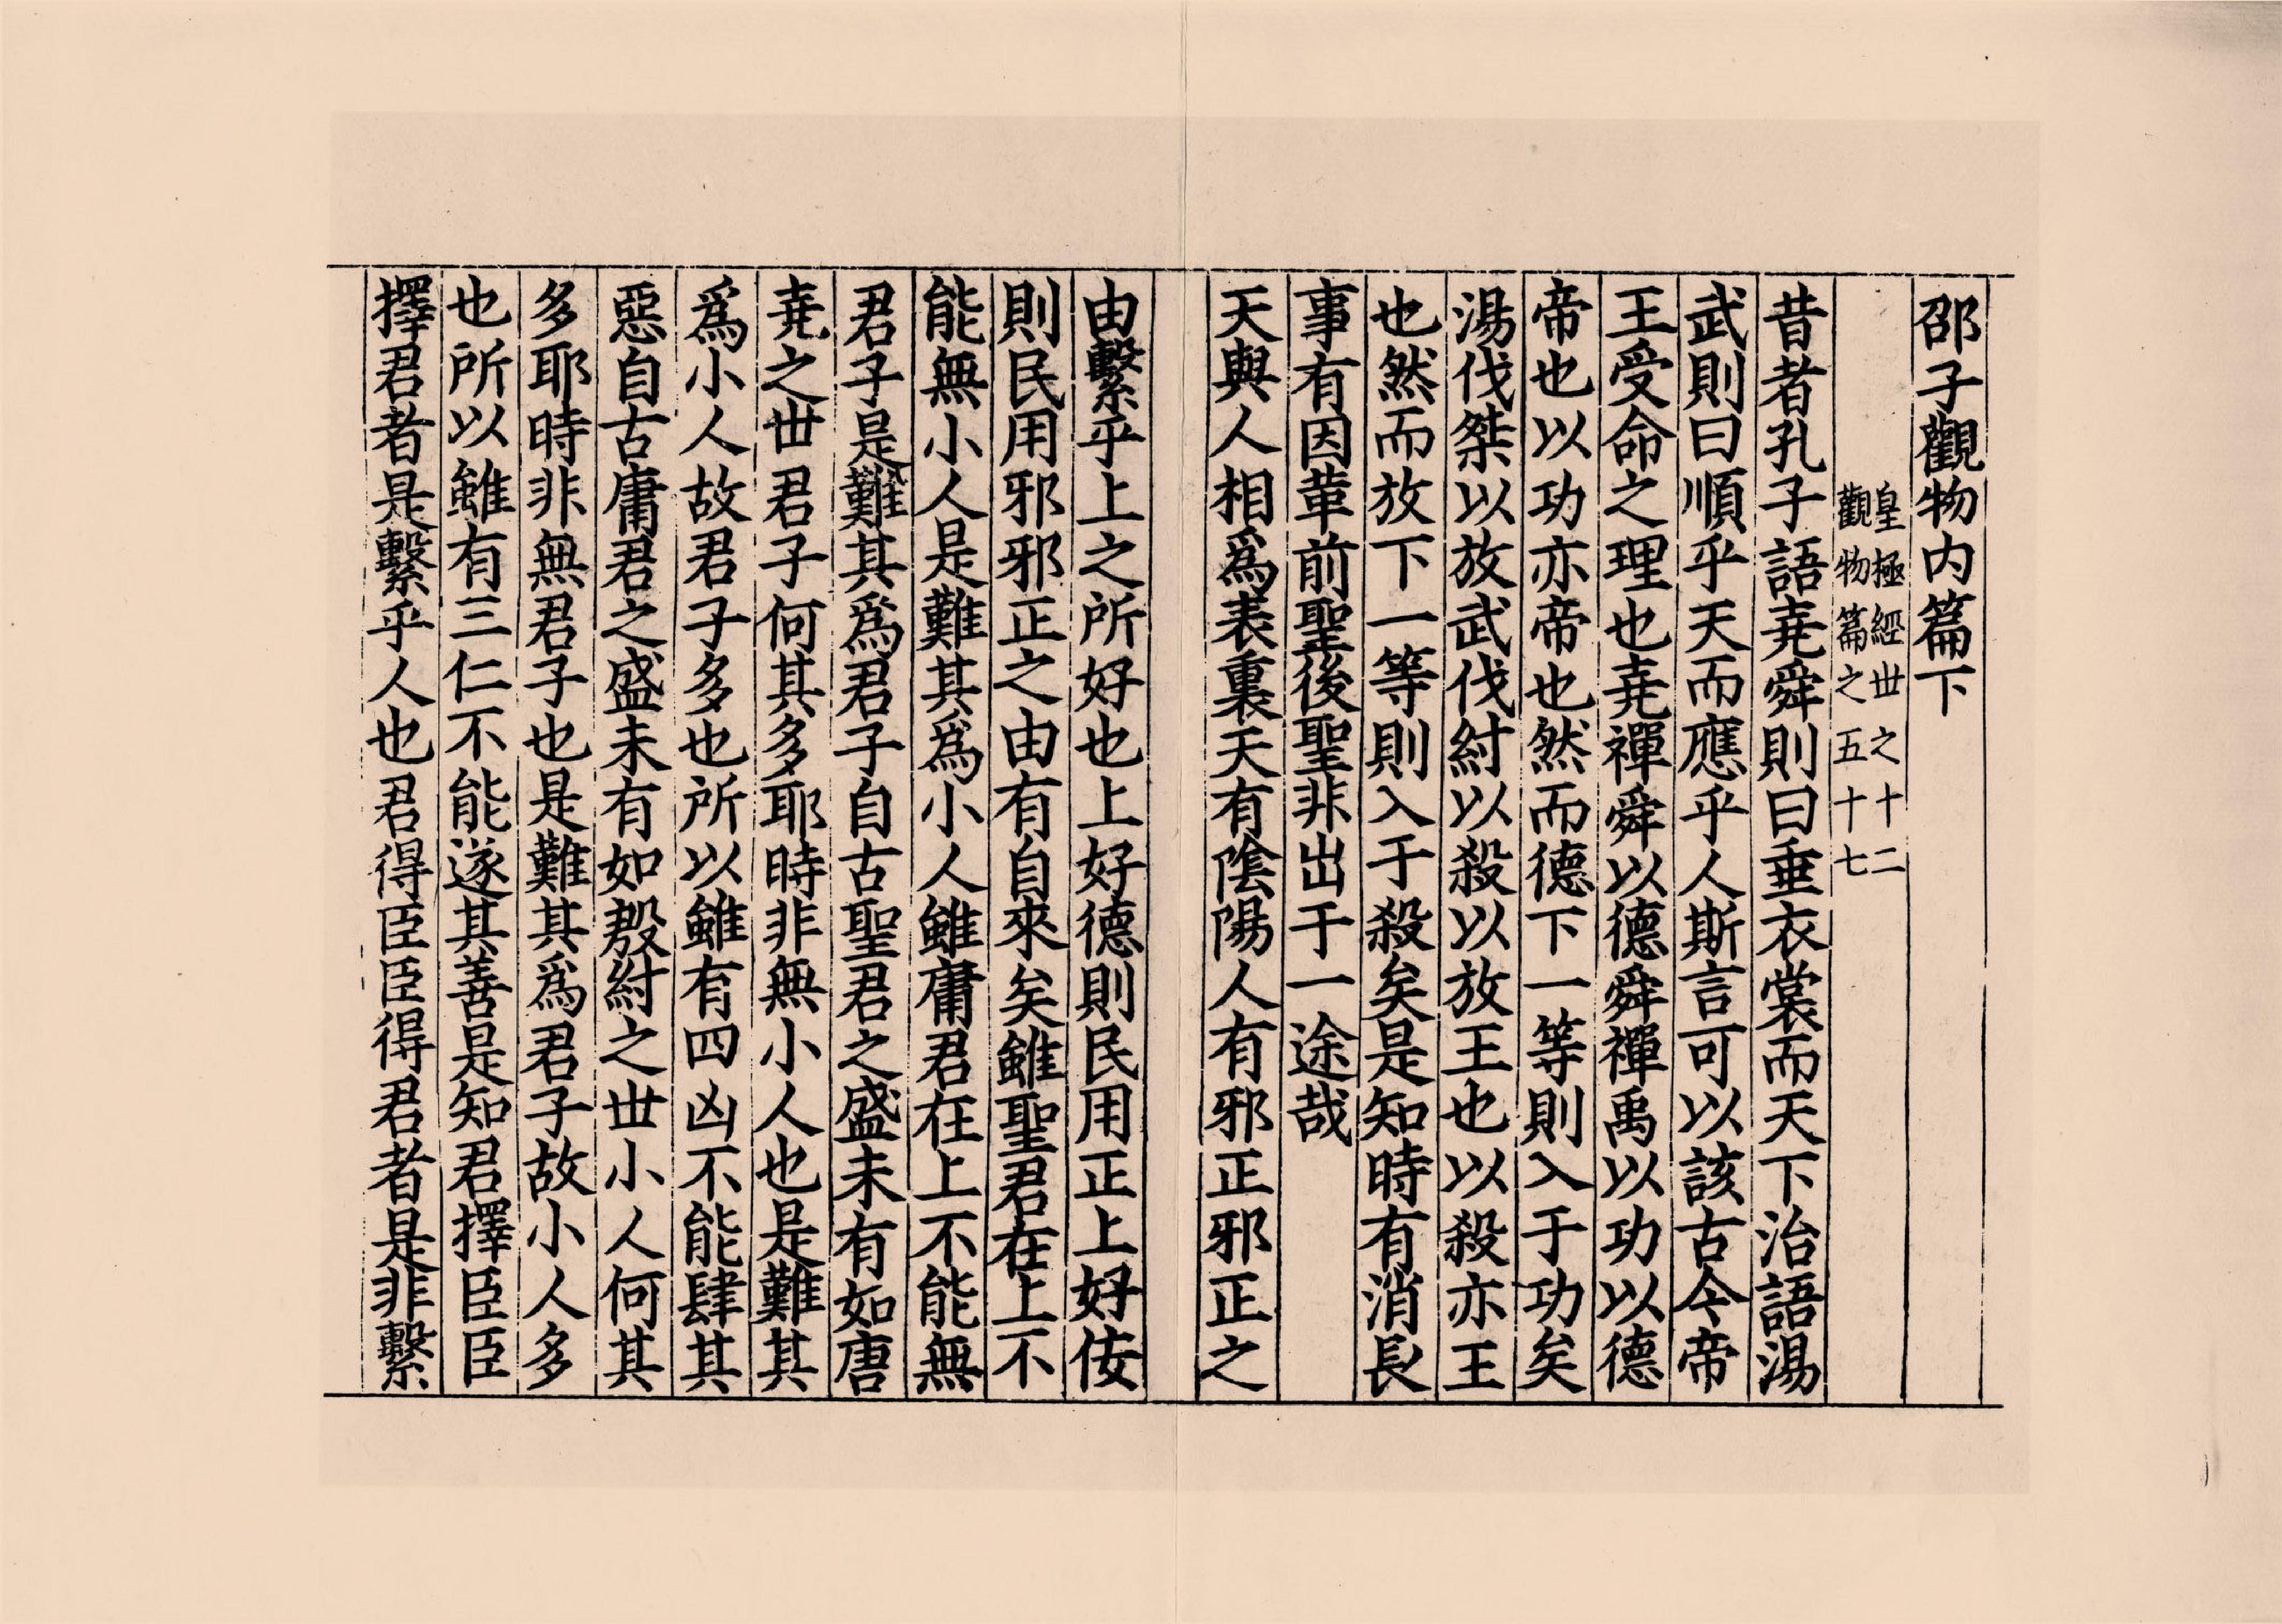 邵子觀物内篇下
皇極經世之十二
觀物篇之五十七
昔者孔子語堯舜則曰垂衣裳而天下治語湯
武則曰順乎天而應乎人斯言可以該古今帝
王受命之理也堯禪舜以德舜禪禹以功以德
帝也以功亦帝也然而德下一等則入于功矣
湯伐桀以放武伐紂以殺以放王也以殺亦王
也然而放下一等則入于殺矣是知時有消長
事有因革前聖後聖非出于一途哉
天與人相爲表裏天有陰陽人有邪正邪正之
由繫乎上之所好也上好德則民用正上好佞
則民用邪邪正之由有自來矣雖聖君在上不
能無小人是難其爲小人雖庸君在上不能無
君子是難其爲君子自古聖君之盛未有如唐
堯之世君子何其多耶時非無小人也是難其
爲小人故君子多也所以雖有四凶不能肆其
惡自古庸君之盛未有如殷紂之世小人何其
多耶時非無君子也是難其爲君子故小人多
也所以雖有三仁不能遂其善是知君擇臣臣
擇君者是繫乎人也君得臣臣得君者是非繫